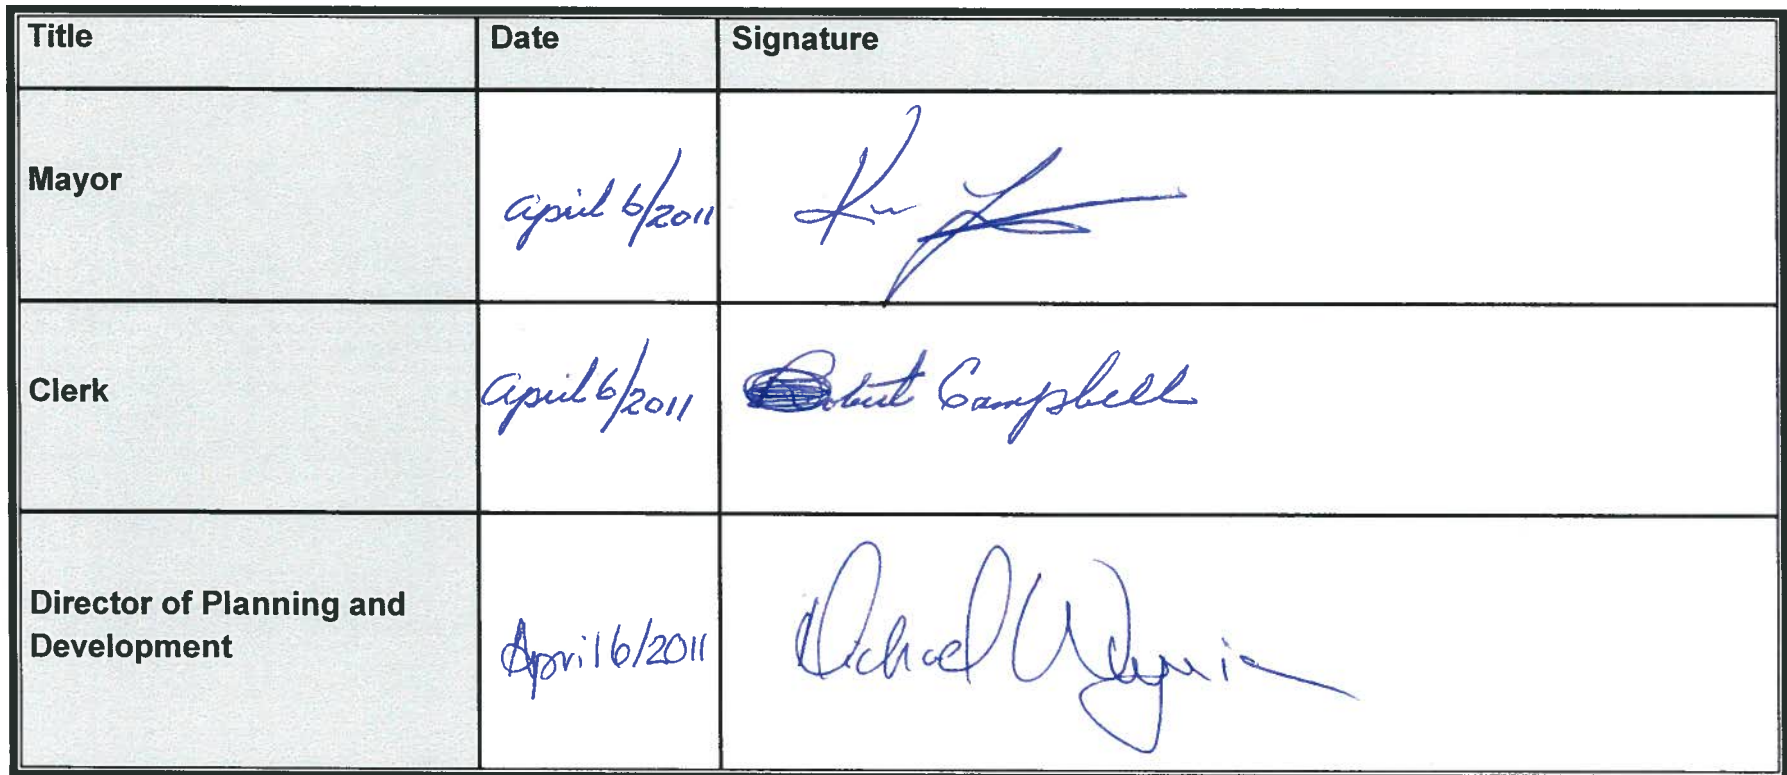 Title Date Signature
Mayor april 6/2011
Clerk april 6/2011 Robert Campbell
Director of Planning and
Development April 6/2011 Michael